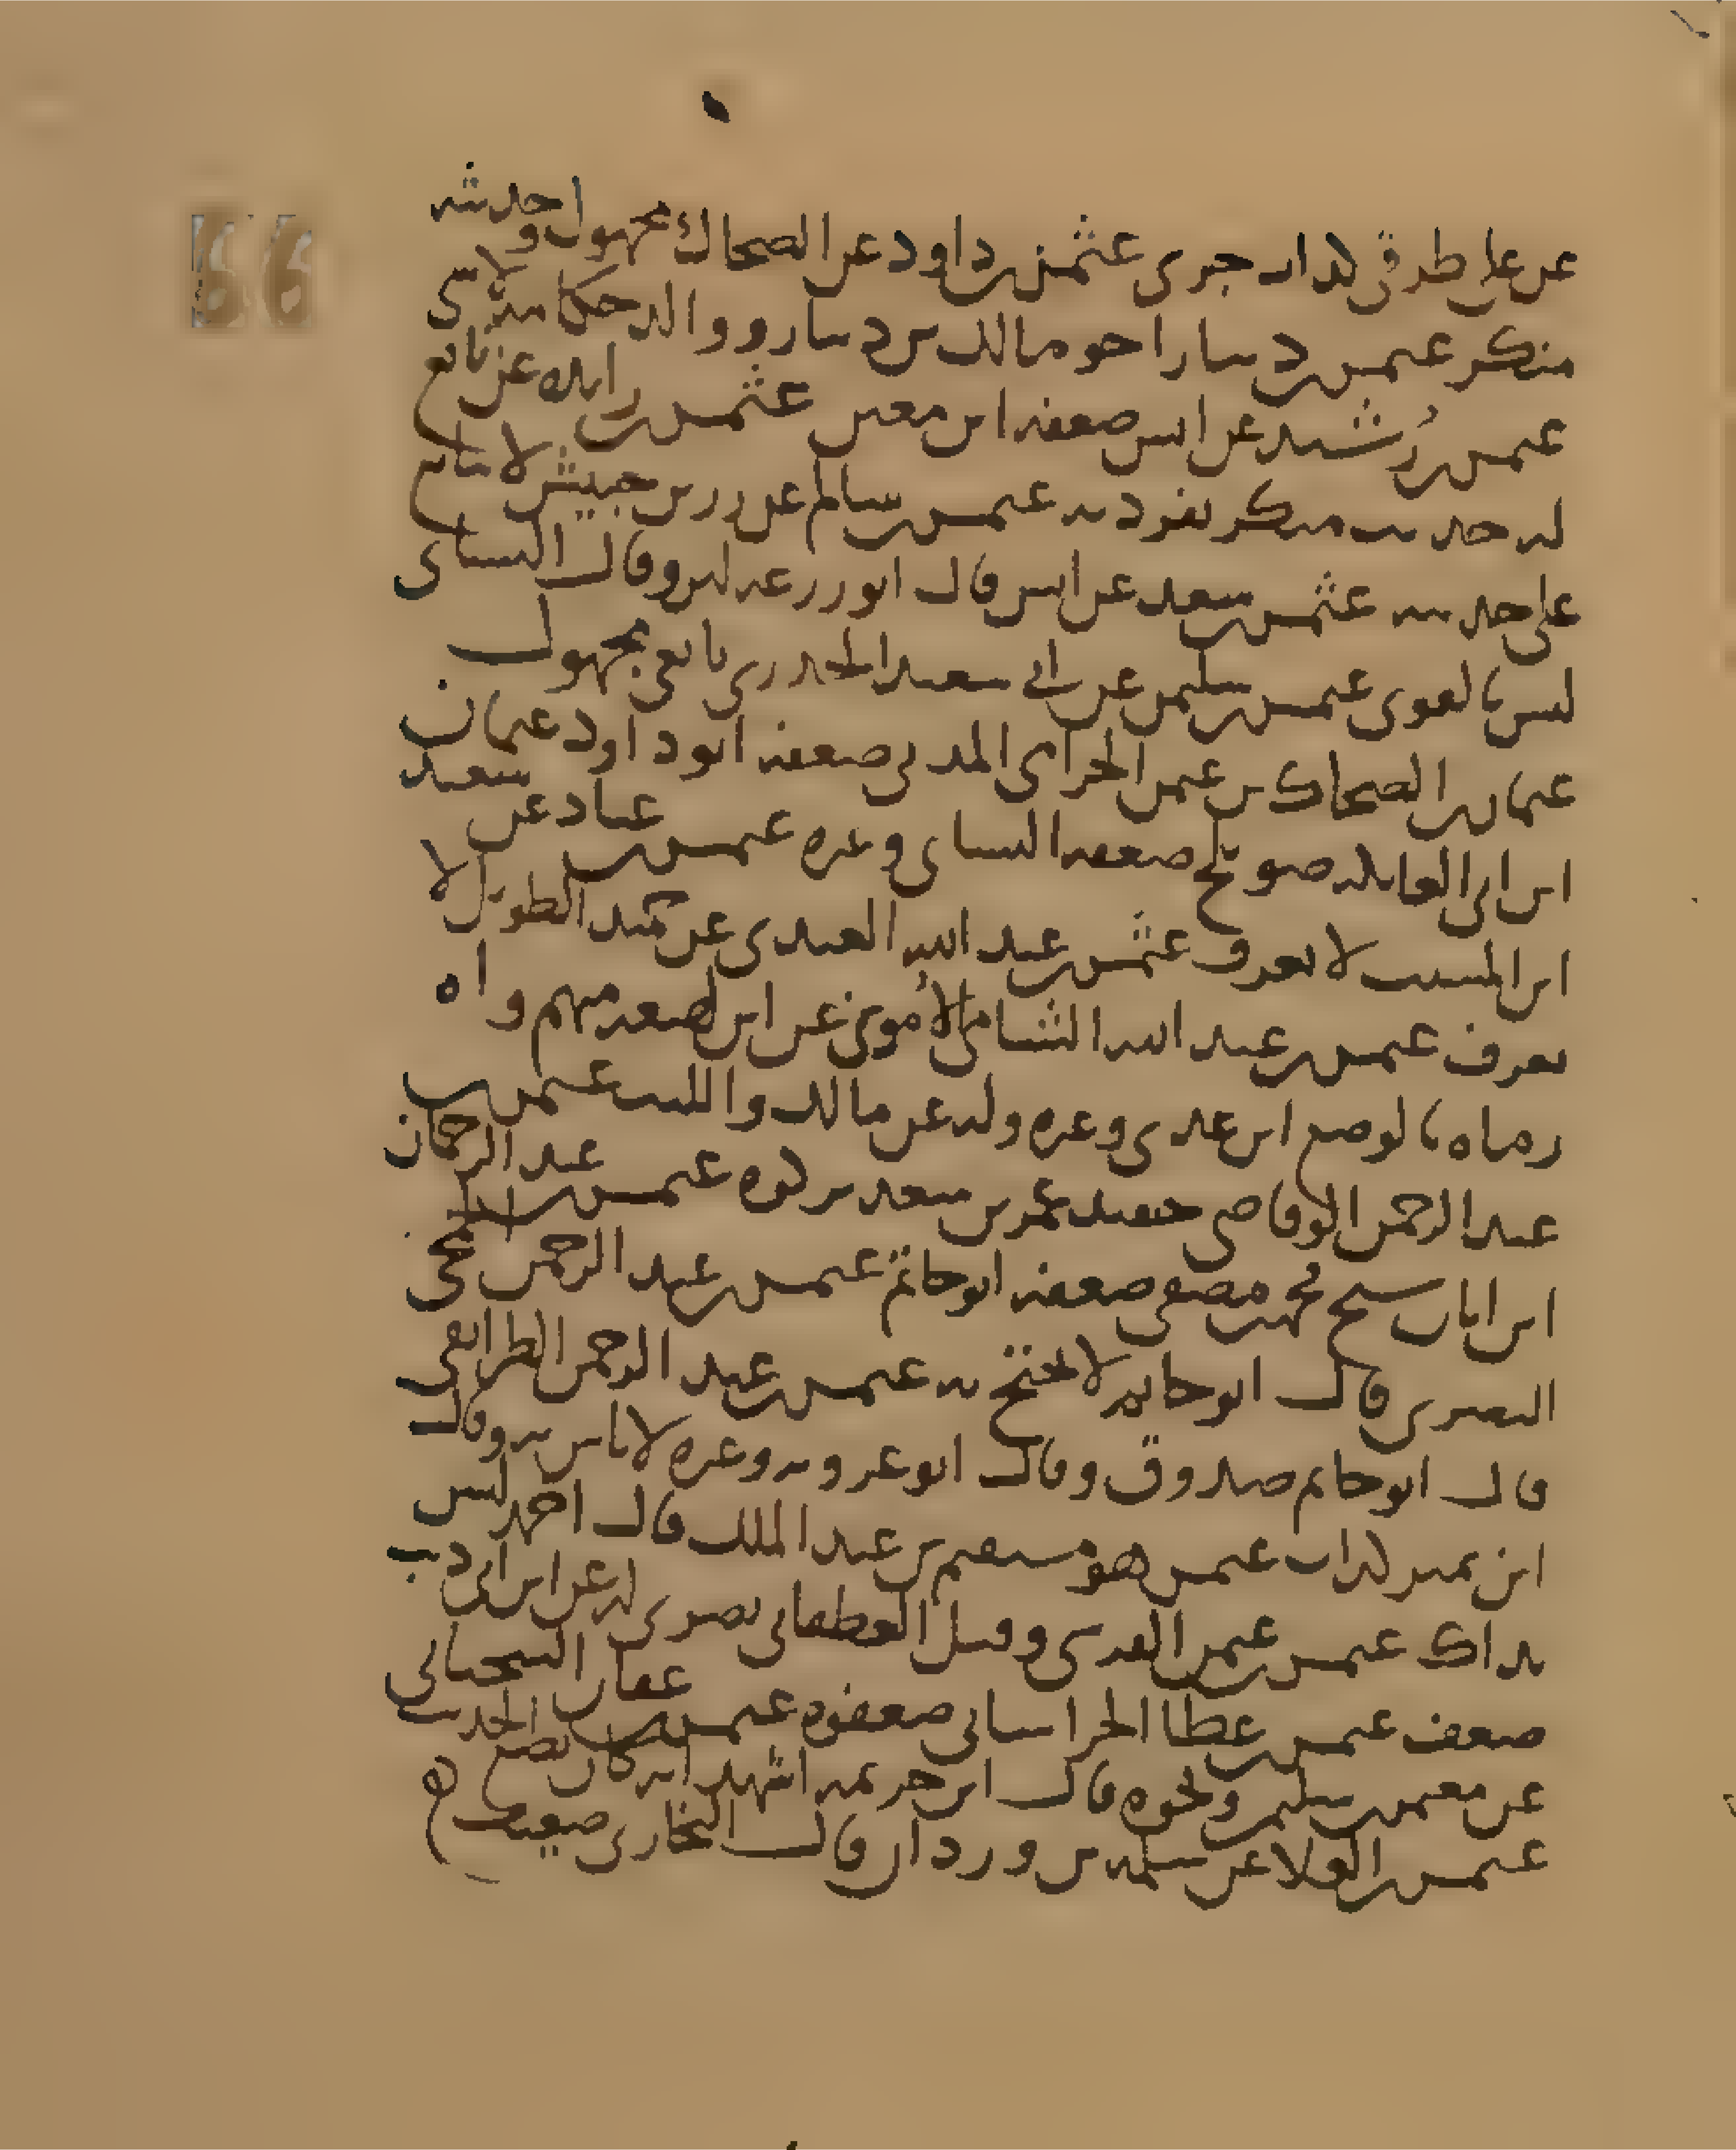 عن علي طرقي كذاب جبري عثمن بن داود عن الضحاك مجهول وحديثه
منكر عثمن بن دينار اخو مالك بن دينار ووالد حكامه لا شي
عثمن بن رُشيد عن انس ضعفه ابن معين عثمن بن زايده عن نافع
له حديث منكر تفرد به عثمن بن سالم عن زر بن حبيش لا يتابع
على حديثه عثمن بن سعد عن انس قال ابو زرعه لين وقال النساي
ليس بالقوي عثمن بن سليمن عن ابي سعيد الخدري تابعي مجهول
عثمان بن الضحاك بن عثمن الحزامي المدني ضعفه ابو داود عثمان
ابن ابي العاتكه صويلح ضعفه النساي وغيره عثمن بن عباد عن سعيد
ابن المسيب لا يعرف عثمن بن عبد الله العبدي عن حميد الطويل لا
يعرف عثمن بن عبد الله الشامي الأموي عن ابن لهيعه متهم واه
رماه بالوضع ابن عدي وغيره وله عن مالك والليث عثمن بن
عبد الرحمن الوقاصي حفيد عمر بن سعد تركوه عثمن بن عبد الرحمان
ابن ابان شيخ لمحمد بن مصفى ضعفه ابو حاتم عثمن بن عبد الرحمن الجمحي
البصري قال ابو حاتم لا يحتج به عثمن بن عبد الرحمن الطرايفي
قال ابو حاتم صدوق وقال ابو عروبه وغيره لا باس به وقال
ابن نمير كذاب عثمن هو مستقيم بن عبد الملك قال احمد ليس
بذاك عثمن بن عمر القرشي وقيل الغطفاني بصري له عن ابن ابي ذيب
ضعف عثمن بن عطا الخراساني ضعفوه عثمن بن عفان السجستاني
عن معتمر بن سليمن ونحوه قال ابن خزيمه اشهد انه كان يضع الحديث
عثمن بن العلا عن سلمه بن وردان قال البخاري ضعيف